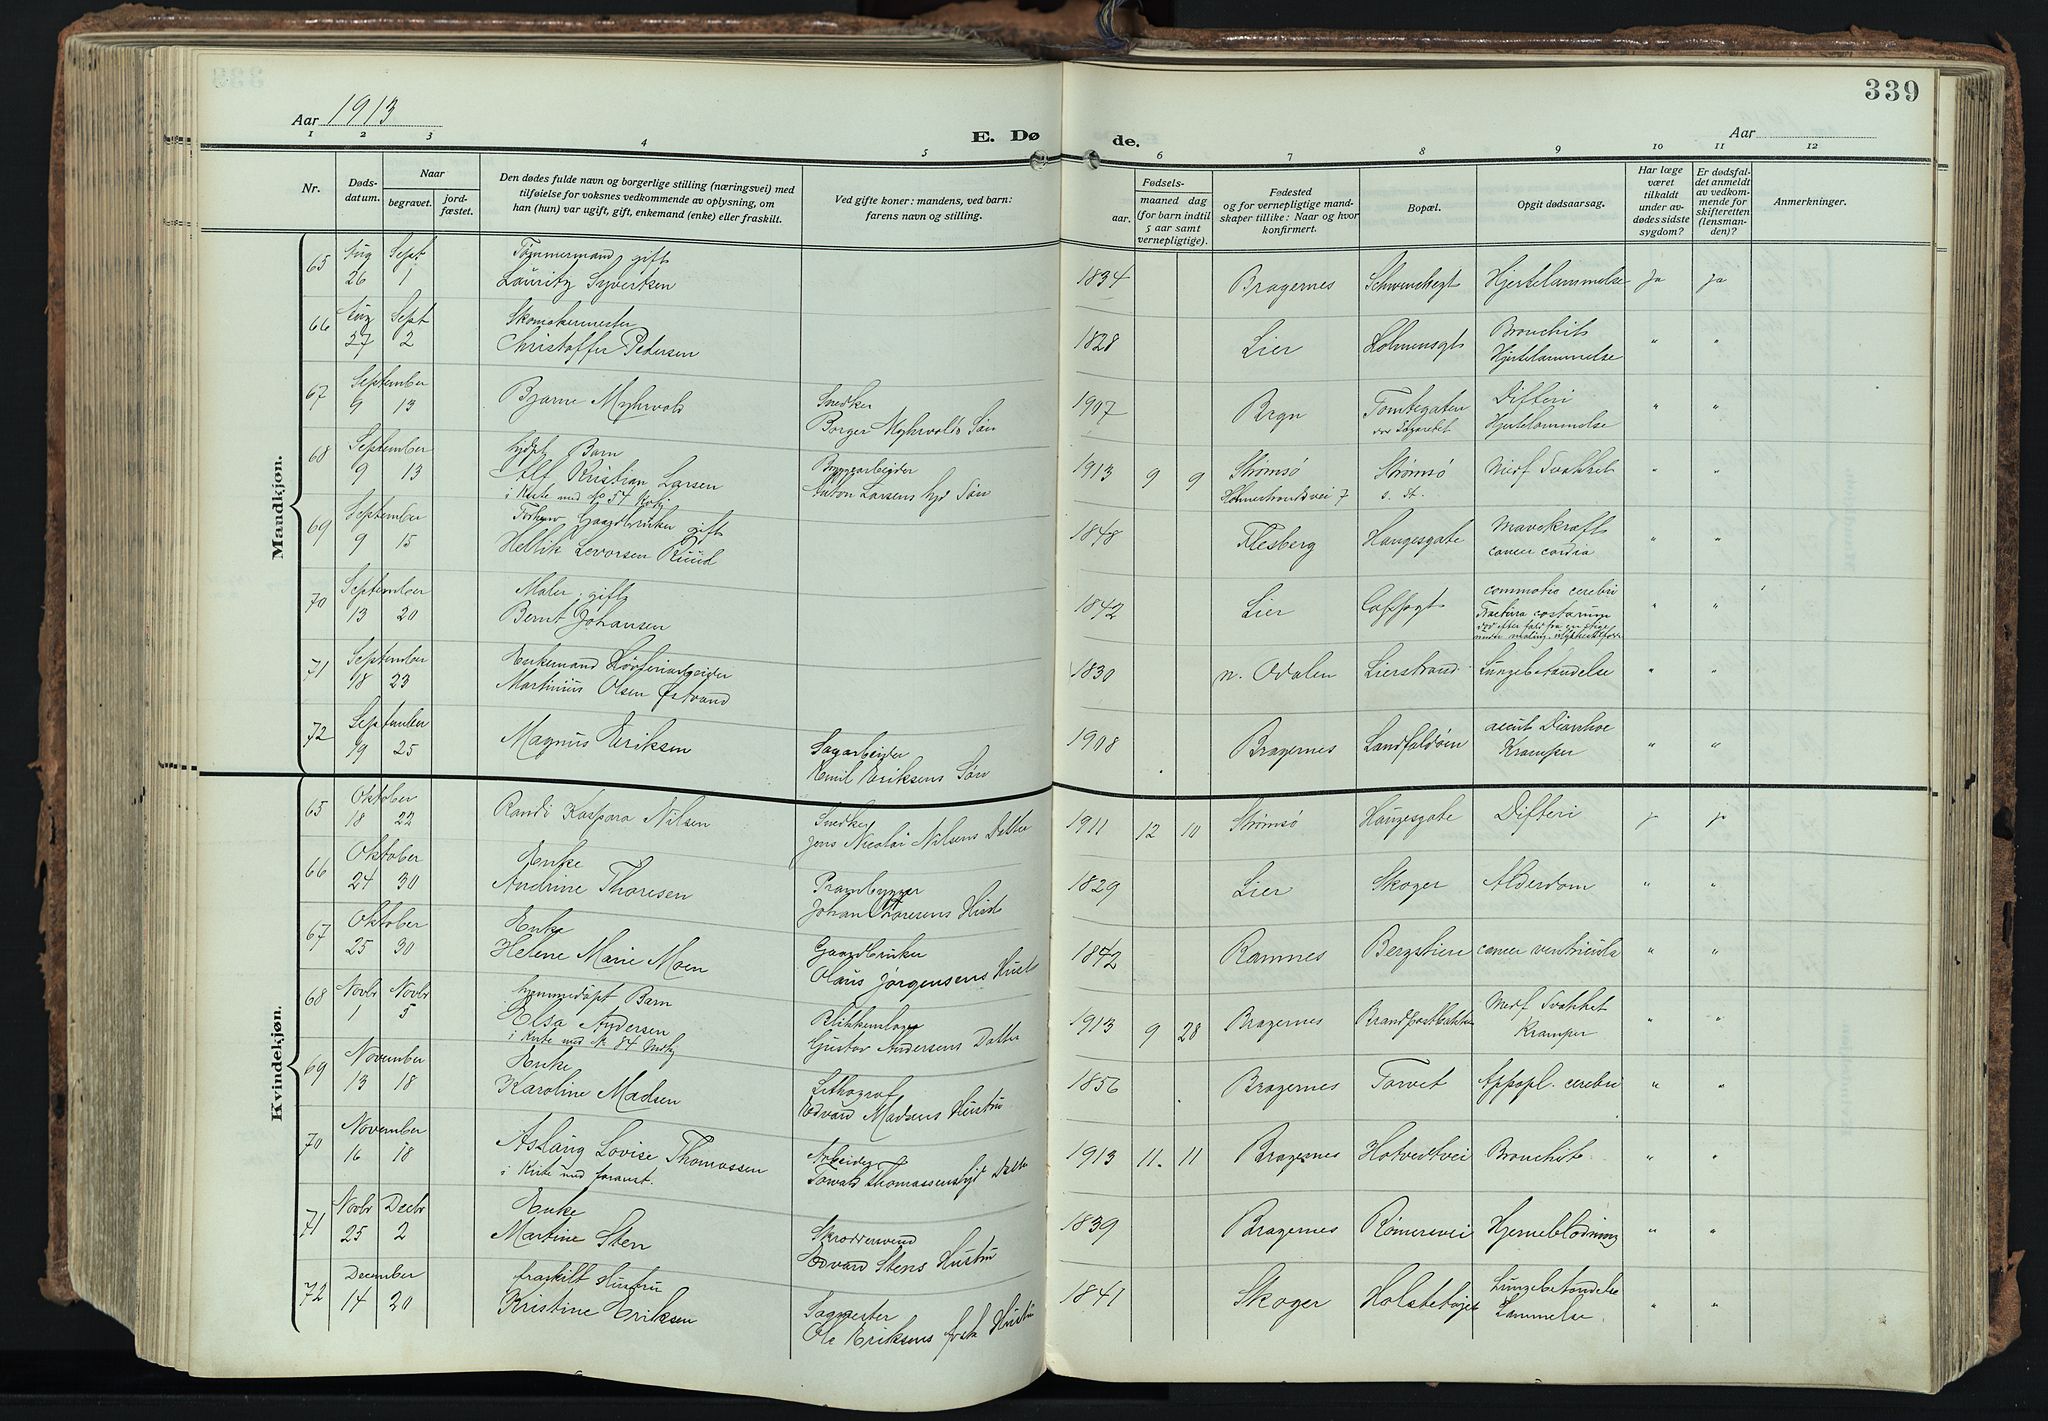 339
Aar 1913
E. Dø
de.
Aar
1 2 3 4 5 6 7 8 9 10 11 12
Nr.
Døds-
datum.
Naar
begravet.
jord-
fæstet.
Den dødes fulde navn og borgerlige stilling (næringsvei) med
tilføielse for voksnes vedkommende av oplysning, om
han (hun) var ugift, gift, enkemand (enke) eller fraskilt.
Ved gifte koner: mandens, ved barn:
farens navn og stilling.
Fødsels-
aar.
maaned dag
(for barn indtil
5 aar samt
vernepligtige).
Fødested
og for vernepligtige mand-
skaper tillike: Naar og hvor
konfirmert.
Bopæl.
Opgit dødsaarsag.
Har læge
været
tilkaldt
under av-
dødes sidste
sygdom?
Er dødsfal-
det anmeldt
av vedkom-
mende for
skifteretten
(lensman-
den)?
Anmerkninger.
Mandkjøn.
65 Aug 26 Sept 1
Tømmermand, gift
Lauritz Syvertsen
1834 Bragernes Schwenckegt Hjertelammelse Ja Ja
66 Aug 27 Sept 2
Skomakermester
Christoffer Pedersen
1828 Lier Holmensgt Bronchit
Hjertelammelse " "
67 September 9 13
Bjarne Myhrvold
Snedker
Borger Myhrvolds Søn
1907 Brgn Tomtegaten
Difteri
Hjertelammelse " "
68 September 9 13
Barn
Alf Kristian Larsen
i Kiste med No 54
Bryggearbeider
Anton Larsens Søn
1913 9 9 Strømsø
Holmestrandsvei 7
Strømsø
s. st.
Medf Svakhet " "
69 September 9 15
Gaardbruker gift
Hellik Levorsen Ruud
1848 Flesberg Haugesgate
cancer cardia " "
70 September 13 20
Maler, gift
Bernt Johansen
1842 Lier
commotio cerebri
Fractura costarum
død efter fald fra en stige
under maling " "
71 September 18 23
Enkemand
Martinius Olsen Østvand
1830 n. Odalen Lierstrand Lungebetændelse " "
72 September 19 25
Magnus Eriksen
Sagarbeider
Emil Eriksens Søn
1908 Bragernes Landfaldøen acut Diarrhoe
Kramper " "
Kvindekjøn.
65 Oktober 18 22
Randi Kaspara Nilsen
Snedker
Jens Nicolai Nilsens Datter
1911 12 10 Strømsø Haugesgate Difteri ja ja
66 Oktober 24 30
Enke
Andrine Thoresen
Prambygger
Johan Thoresens Hust
1829 Lier Skoger Alderdom " "
67 Oktober 25 30
Enke
Helene Marie Moen
Gaardbruker
Olaus Jørgensens Hust
1842 Ramnes Bergstien cancer ventriculi " "
68 Novbr 1 Novbr 5
hjemmedøpt Barn
Elsa Andersen
i Kiste med Nr 84
Blikkenslager
Gustav Andersens Datter
1913 9 28 Bragernes Brandpostbakken Medf Svakhet
Kramper " "
69 November 13 18
Enke
Karoline Madsen
Lithograf
Edvard Madsens Hustru
1856 Bragernes Torvet Appopl. cerebri " "
70 November 16 18
Aslaug Lovise Thomassen
i Kiste med foranst.
Arbeider
Torvald Thomassens Datter
1913 11. 11 Bragernes Hotvedtvei Bronchit " "
71 Novbr 25 Decbr 2
Enke
Martine Sten
Skræddersvend
Edvard Stens Hustru
1839 Bragernes Rømersvei Hjerneblødning " "
72 December 14 20
fraskilt Hustru
Kristine Eriksen
Sagmester
Ole Eriksens frsk Hustru
1841 Skoger Lungebetændelse
Lammelse " "